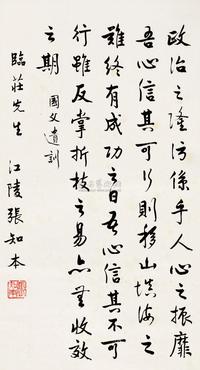 政治之隆污係乎人心之振靡
吾心信其可行則移山填海之
難終有成功之日吾心信其不可
行雖反掌折枝之易亦無收效
之期 國父遺訓
臨莊先生 江陵張知本